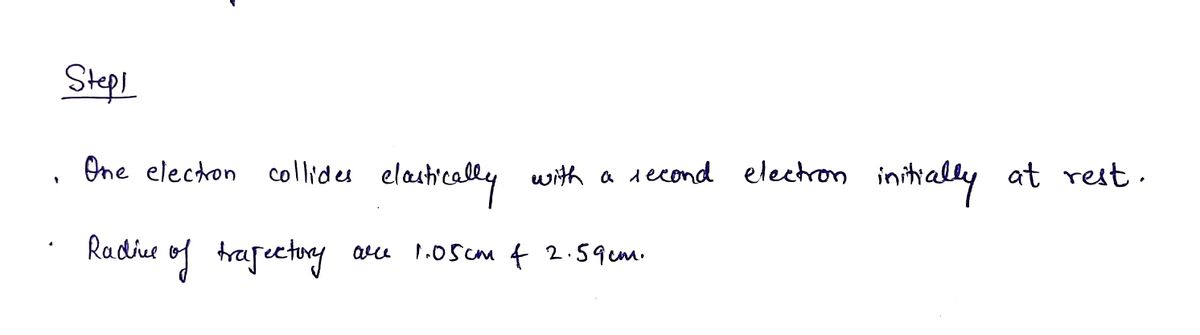 Step1
. One electron collides elastically with a second electron initially at rest.
. Radius of trajectory are 1.05cm & 2.59cm.